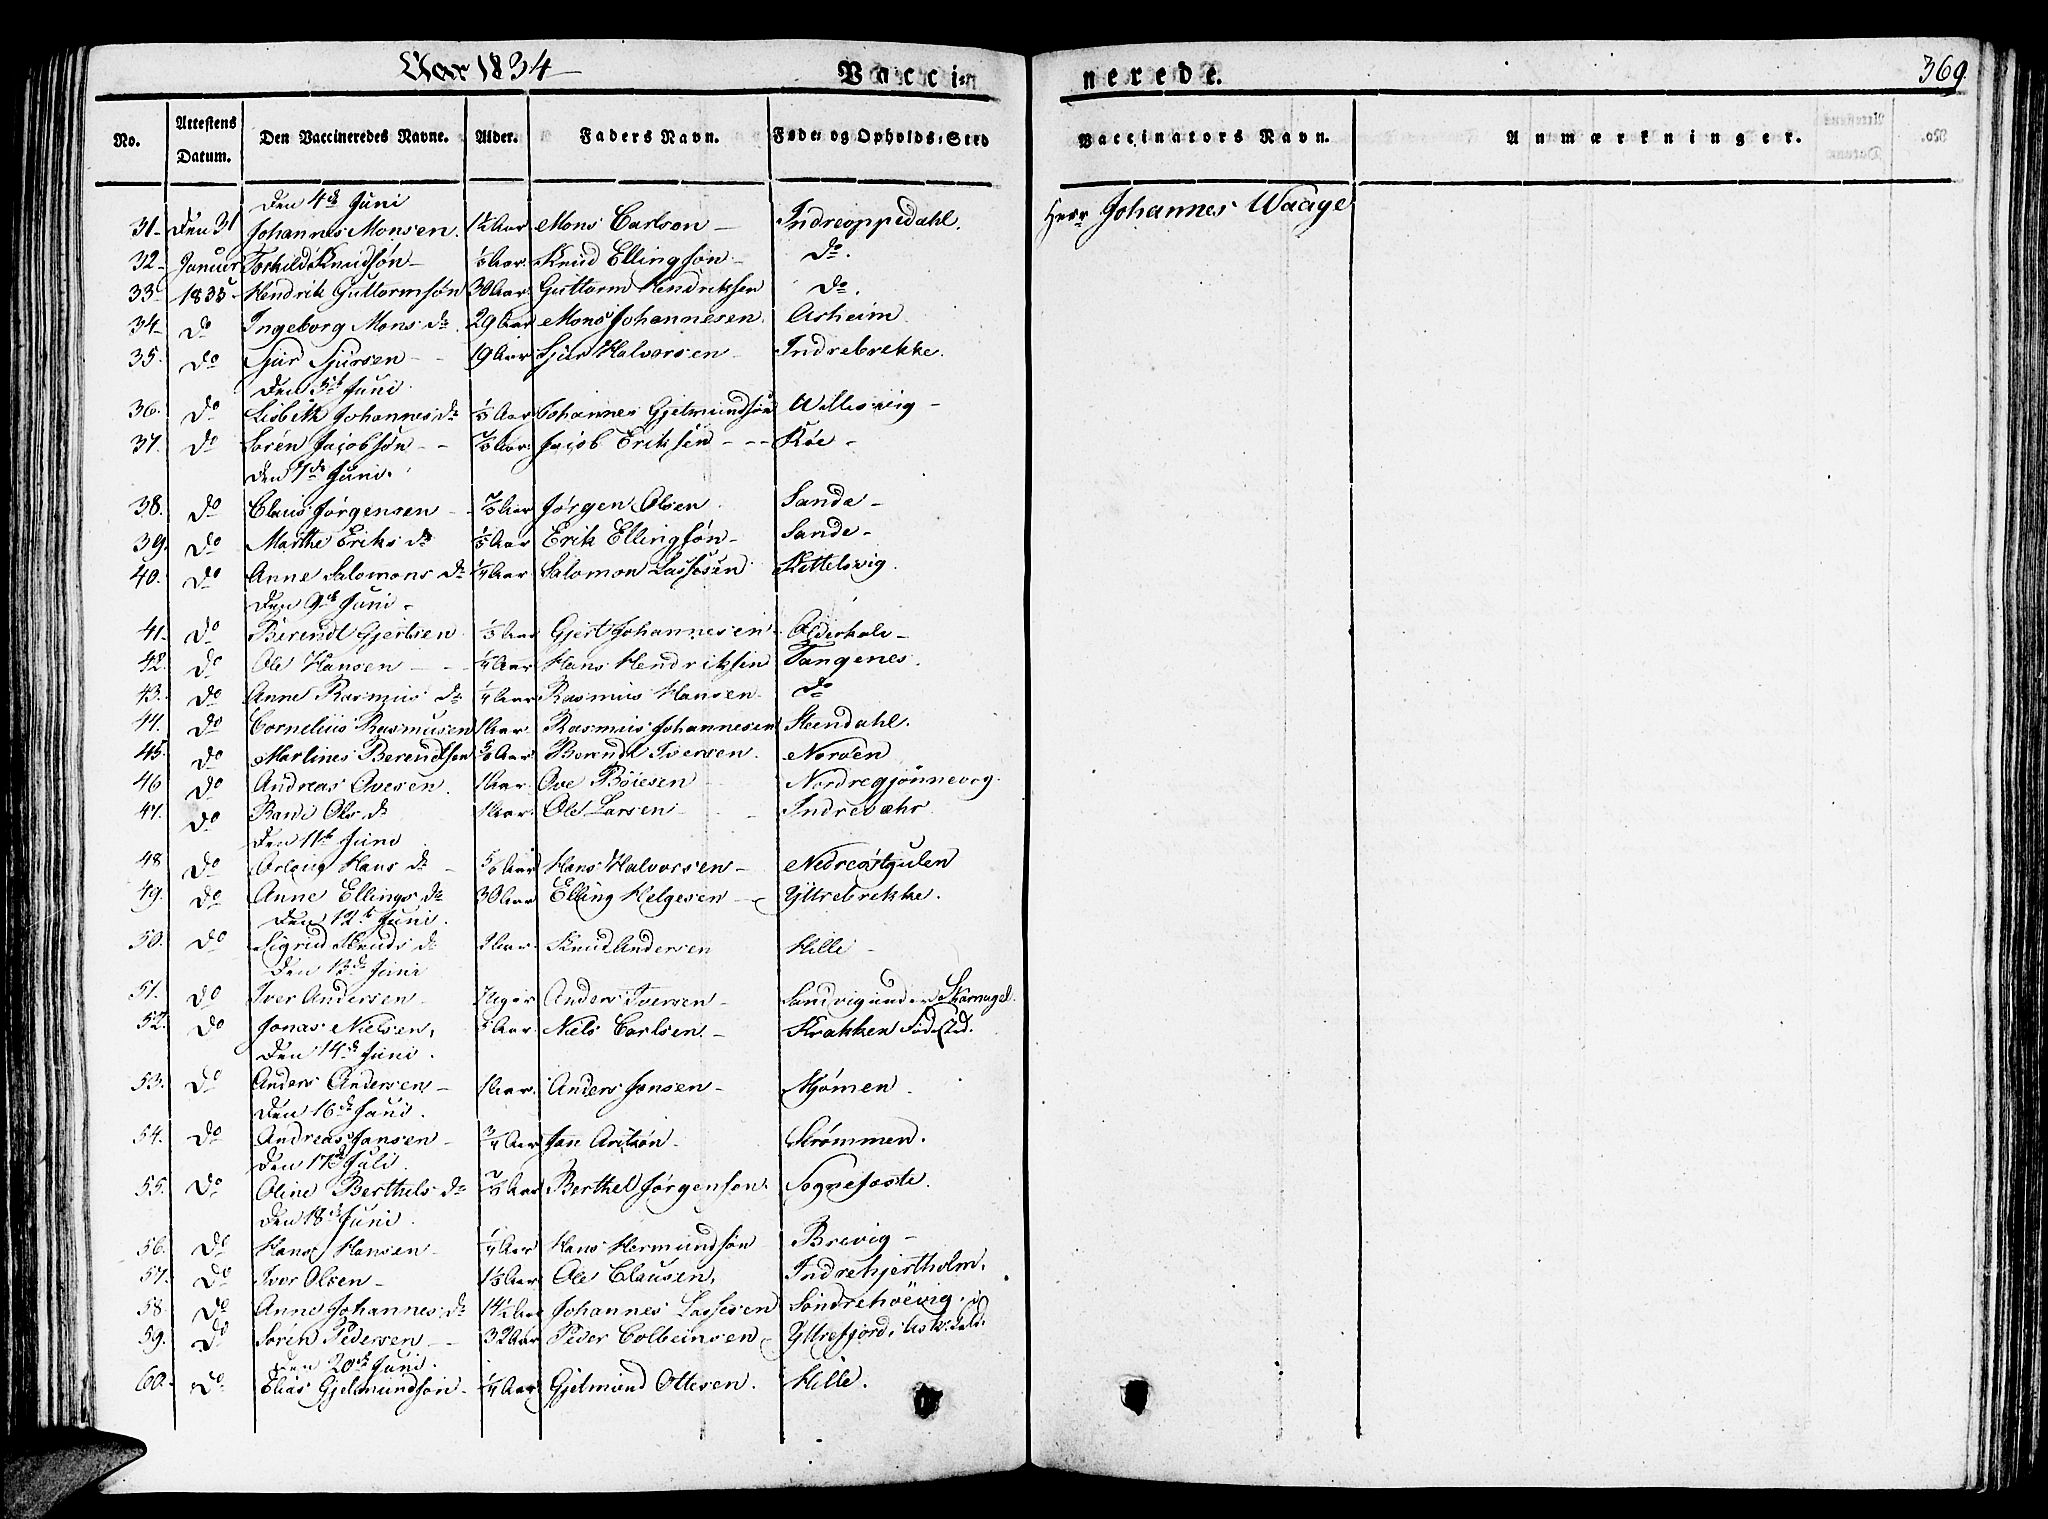 Aar 1834
Vacci-
nerede.
369
No.
Attestens Datum.
Den Vaccineredes Navne.
Alder.
Faders Navn.
Føde og Opholds-Sted
Vaccinators Navn.
Anmærkninger.
Den 4de Juni
31 Den 31 Johannes Monsen. Aar Mons Carlson Indreoppedahl. Herr Johannes Waage
32 Januar Knudsøn Aar. Knud Ellingsøn Do.
33 1835 Hendrik Guttormsøn 30 Aar. Guttorm Hendriksen Do.
34 Do Ingeborg Mons dr. 29 Aar Mons Johannesen. Asheim.
35. Do Sjur Sjursen 19 Aar Sjur Halvorsen Indrebrekke.
Den 5te Juni.
36. Do Lisbeth Johannes dr Aar Johannes Gjelmundsøn
37. Do Søren Jacobsøn Aar. Jacob Eriksen Røe
Den 7de Juni.
38. Do Claus Jørgensen Aar Jørgen Olsen. Sande
39. Do Marthe Eriks dr Aar Erik Ellingsøn Sande
40. Do Anne Salomons dr 1/4 Aar Salomon Lassesen Kettelsvig.
Den 9de Juni
41. Do Berendt Gjertsen Aar Gjert Johannesen
42. Do Ole Hansen 1/4 Aar Hans Hendriksen Tangenes.
43. Do Anne Rasmus dr 1/4 Aar Rasmus Hansen Do
44. Do Cornelius Rasmusen 1 Aar. Rasmus Johannesen Steendahl.
45. Do Martines Berendtsen Aar Berendt Iversen. Norven
46 Do Andreas Ovesen. 1 Aar. Ove Böiesen Nordregjønnevog.
47. Do Olis dr 1 Aar. Ole Larsen
Den 11te Juni
48 Do Hans dr Aar Hans Halvorsen Nedreøstgulen
49. Do Anne Ellings dr 30 Aar Elling Helgesen Yttrebrekke.
Den 12te Juni.
50. Do Sigrid Knuds dr Aar. Knud Andersen Hille
Den 13de Juni
51. Do Iver Andersen Anders Iversen Sandvig under
52. Do Jonas Nielsen, Aar Niels Carlsen. Krakken Fødested.
Den 14de Juni.
53. Do Anders Andersen 1 Aar. Anders Jonsen Mjømen.
Den 16de Juni.
54. Do Andreas Jansen 3/4 Aar Jan Strømmen.
Den 17de Juli.
55. Do Oline Berthels dr Aar Berthel Jørgenson. Sognefæste.
Den 18de Juni.
56. Do Hans Hansen 1/4 Aar Hans Hermundsøn Brevig
57. Do Iver Olsen Aar Ole Clausen. Indrehjertholm.
58. Do Anne Johannes dr Aar Johannes Lassesen
59. Do Søren Pedersen 32 Aar Peder Colbeinsen Yttrefjord i
Den 20de Juni.
60. Do Elias Gjelmundsøn 1/4 Aar Gjelmund Ottesen. Hille.